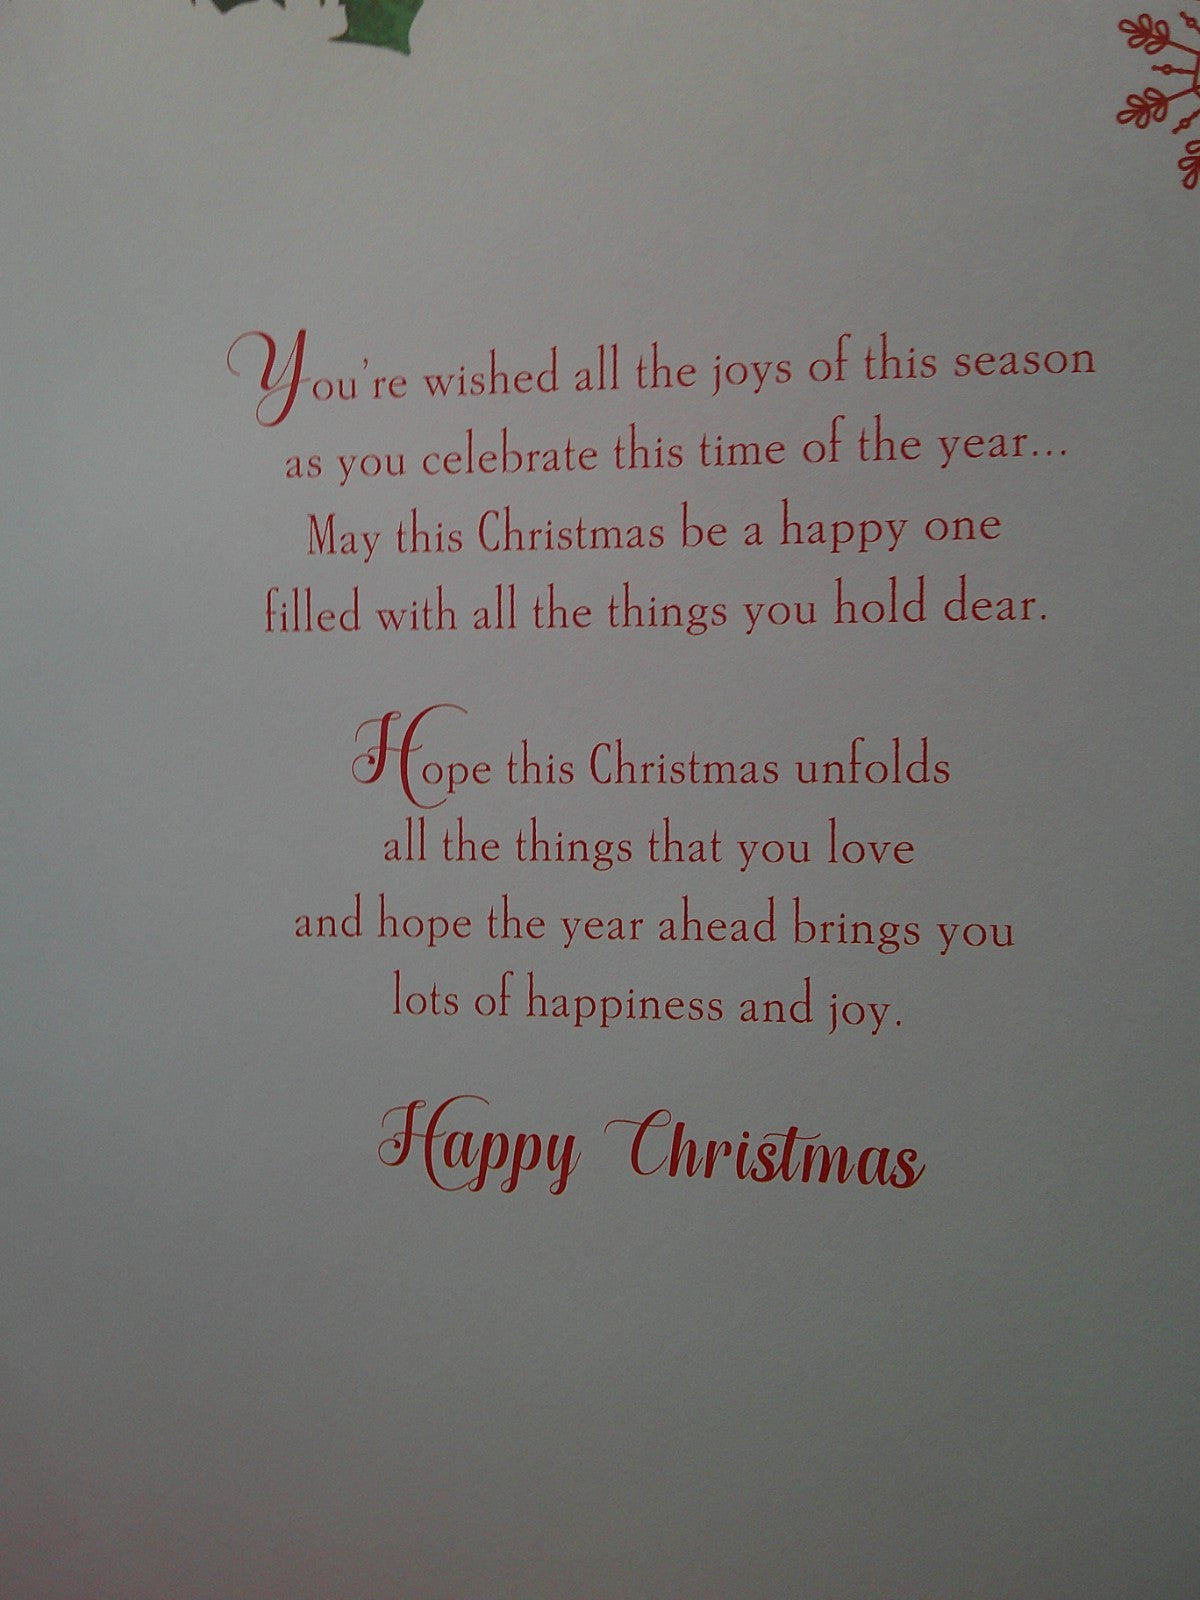 You're wished all the joys of this season
as you celebrate this time of the year...
May this Christmas be a happy one
filled with all the things you hold dear.
Hope this Christmas unfolds
all the things that you love
and hope the year ahead brings you
lots of happiness and joy.
Happy Christmas